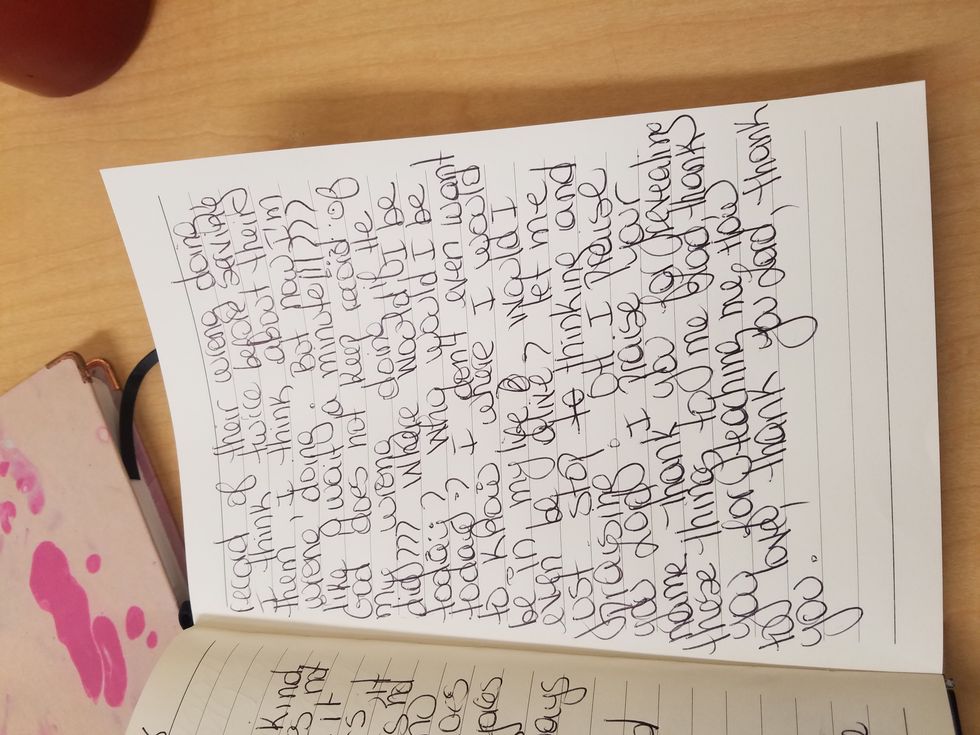 record of ther wrong doing
I think twice before saying
them, I think about theirs
wrong doing. But how I'm
like wait a minute!!????
God does not keep record of
my wrong doing if he
did??? Where would I be
today? Who would I be
today? I don't even want
to know where I would
be in my life & would I
even be alive? let me
Just stop to thinking and
Grasping. Oh I Praise
you lord. I praise your
name thank you for revealing
those things to me god thanks
you for teaching me how
to love, thank you god, thank
you.